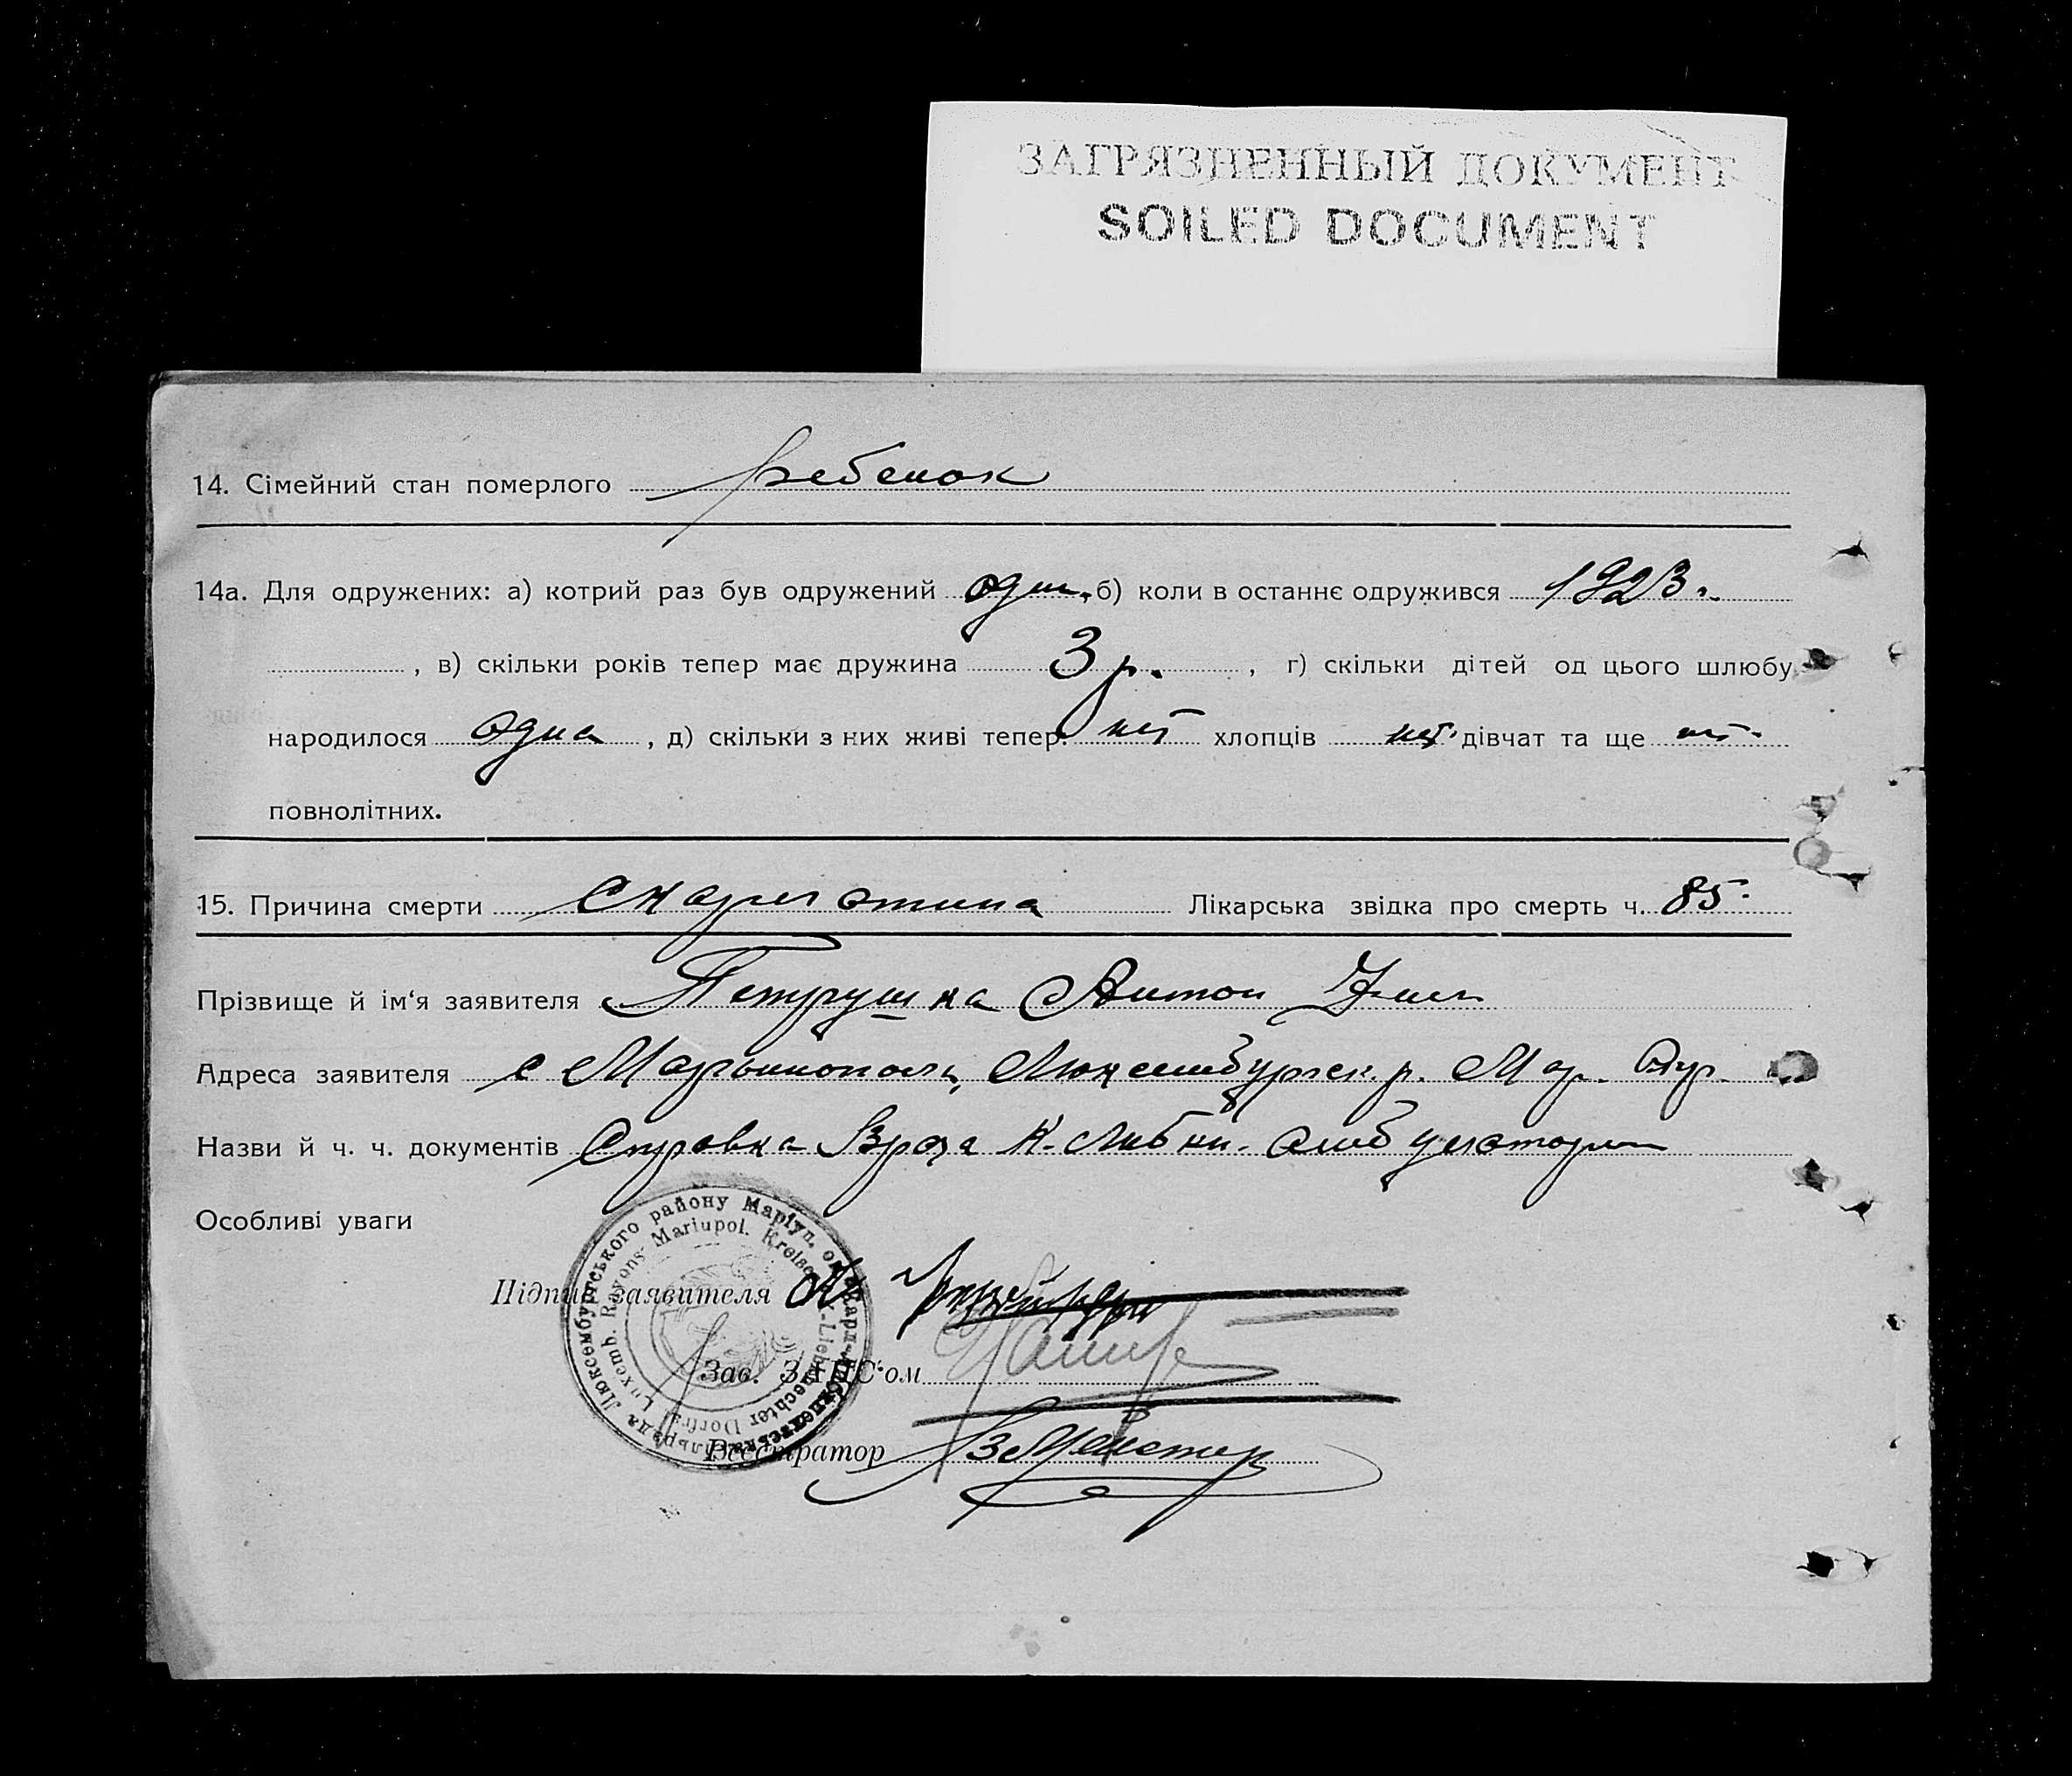 ЗАГРЯЗНЕННЫЙ ДОКУМЕНТ
SOILED DOCUMENT
14. Сімейний стан померлого ребенок
14а. Для одружених: а) котрий раз був одружений один, б) коли в останнє одружився 1923 г.
, в) скільки років тепер має дружина 3 р. , г) скільки дітей од цього шлюбу
народилося одна , д) скільки з них живі тепер: нет хлопців нет дівчат та ще нет
повнолітних.
15. Причина смерти скарлатина Лікарська звідка про смерть ч. 85
Прізвище й ім‘я заявителя Петрушка Антон
Адреса заявителя с Марьинополь, Люксембургск. р. Мар. Окр.
Назви й ч. ч. документів Справка Врача К. Либкн. амбулатории
Особливі уваги
Люксембургського району Маріуп. ок.
Luxemb. Rayons Mariupol. Kreises
Підпис заявителя
Зав. ЗАГС‘ом
Реєстратор